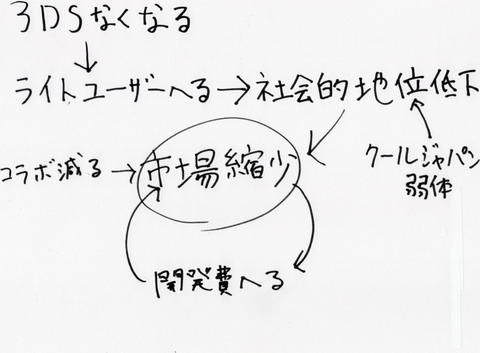 3DSなくなる
ライトユーザーへる→社会的地位低下
コラボ減る→市場縮少
クールジャパン
弱体
開発費へる